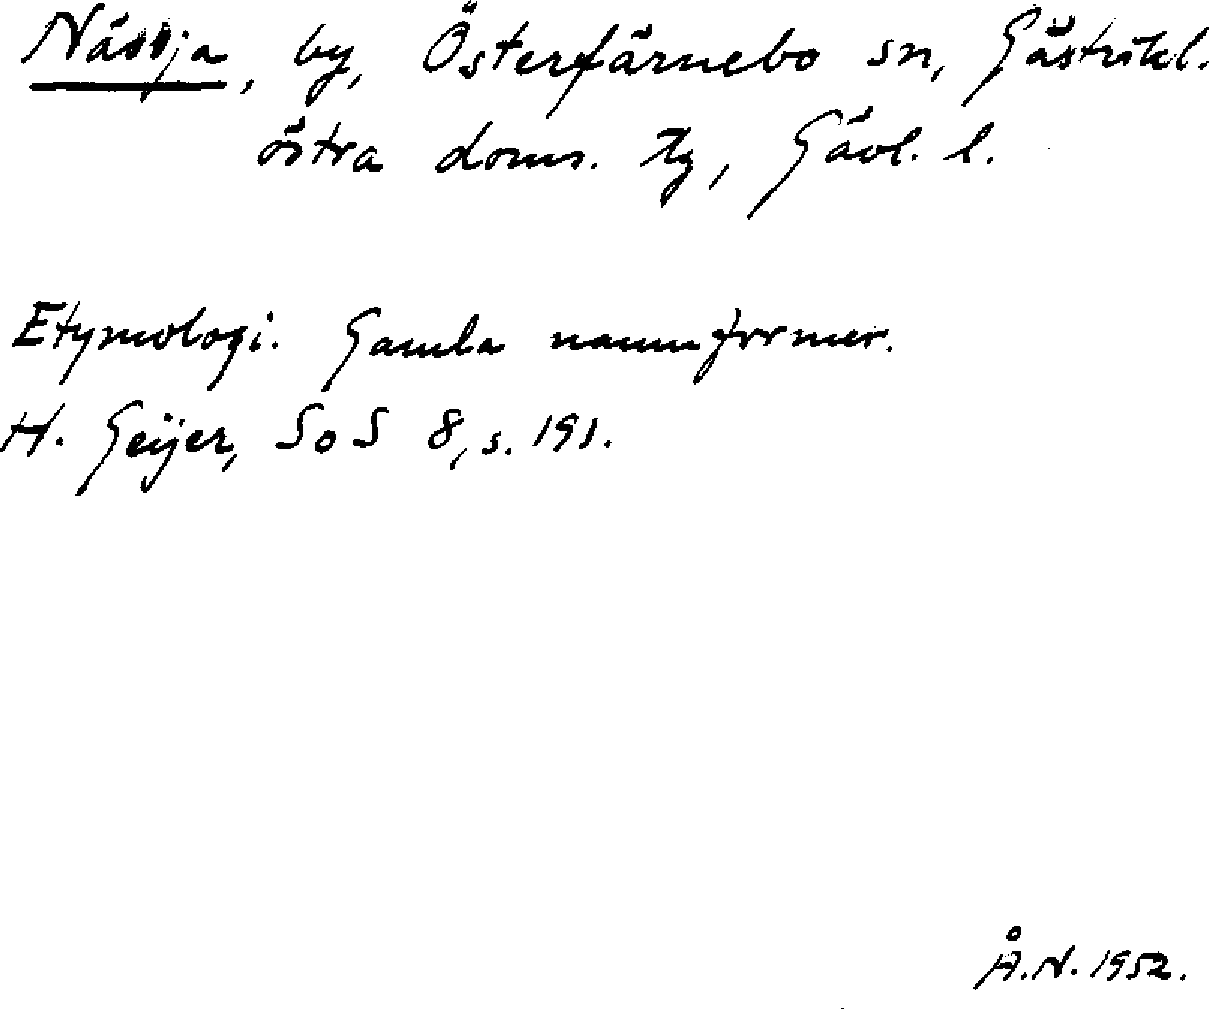 Nässja, by, Österfärnebo sn, Gästrikl.
östra doms. tg, Gävl. l.
Etymologi. Gamla namnformer.
H. Geijer, SoS 8, s. 191.
Å.N. 1952.